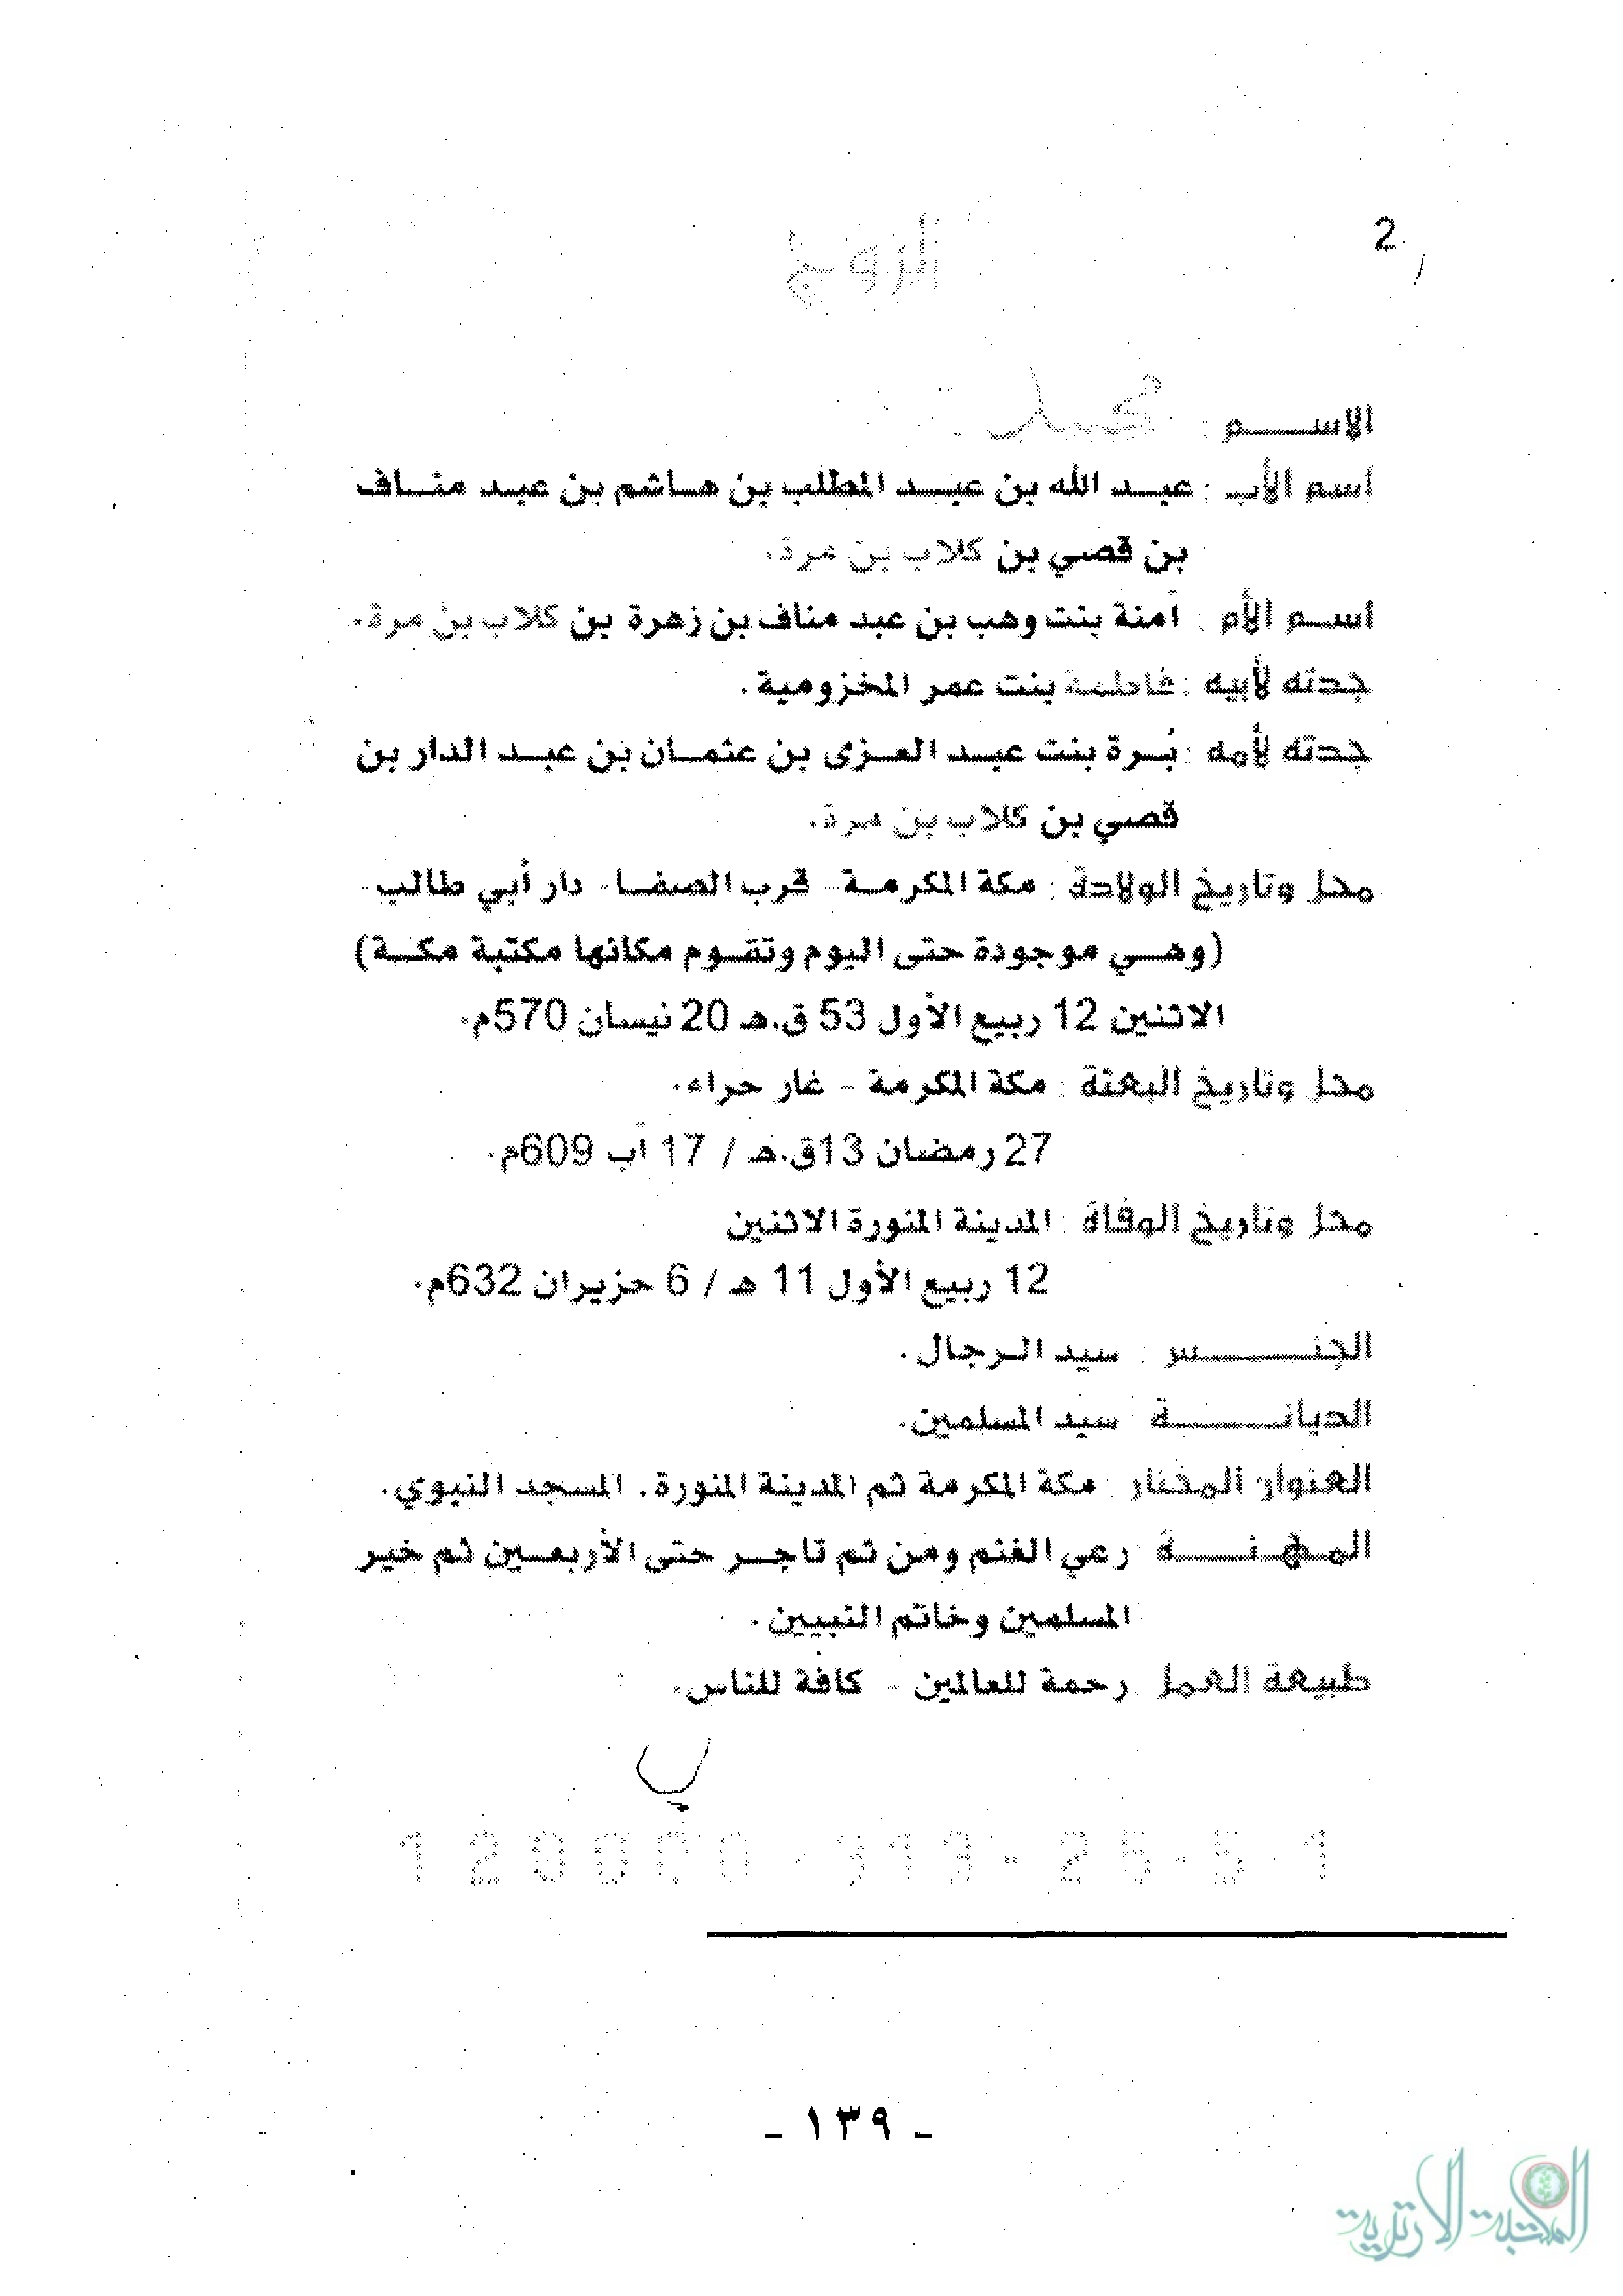 2
الزوج
الاسم : محمد
اسم الأب : عبد الله بن عبد المطلب بن هاشم بن عبد مناف
بن قصي بن كلاب بن مرة.
اسم الأم : آمنة بنت وهب بن عبد مناف بن زهرة بن كلاب بن مرة.
جدته لأبيه : فاطمة بنت عمر المخزومية.
جدته لأمه : بُرة بنت عبد العزى بن عثمان بن عبد الدار بن
قصي بن كلاب بن مرة.
محل وتاريخ الولادة : مكة المكرمة - قرب الصفا - دار أبي طالب -
(وهي موجودة حتى اليوم وتقوم مكانها مكتبة مكة)
الاثنين 12 ربيع الأول 53 ق.هـ 20 نيسان 570م.
محل وتاريخ البعثة : مكة المكرمة - غار حراء.
27 رمضان 13ق.هـ / 17 آب 609م.
محل وتاريخ الوفاة : المدينة المنورة الاثنين
12 ربيع الأول 11 هـ / 6 حزيران 632م.
الجنس : سيد الرجال.
الديانة سيد المسلمين.
العنوان المختار : مكة المكرمة ثم المدينة المنورة. المسجد النبوي.
المهنة رعي الغنم ومن ثم تاجر حتى الأربعين ثم خير
المسلمين وخاتم النبيين.
طبيعة العمل رحمة للعالمين - كافة للناس.
- ١٣٩ -
المكتبة الإرترية